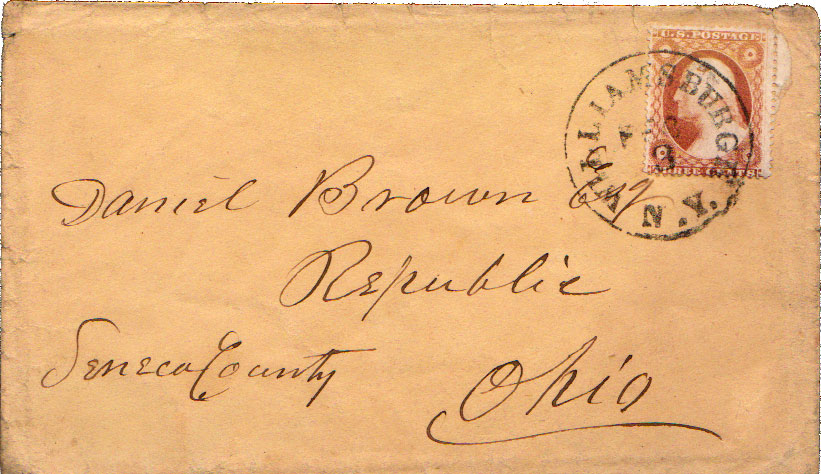 U.S. POSTAGE
THREE CENTS
WILLIAMSBURGH N.Y.
Daniel Brown Esq
Republic
Seneca County
Ohio